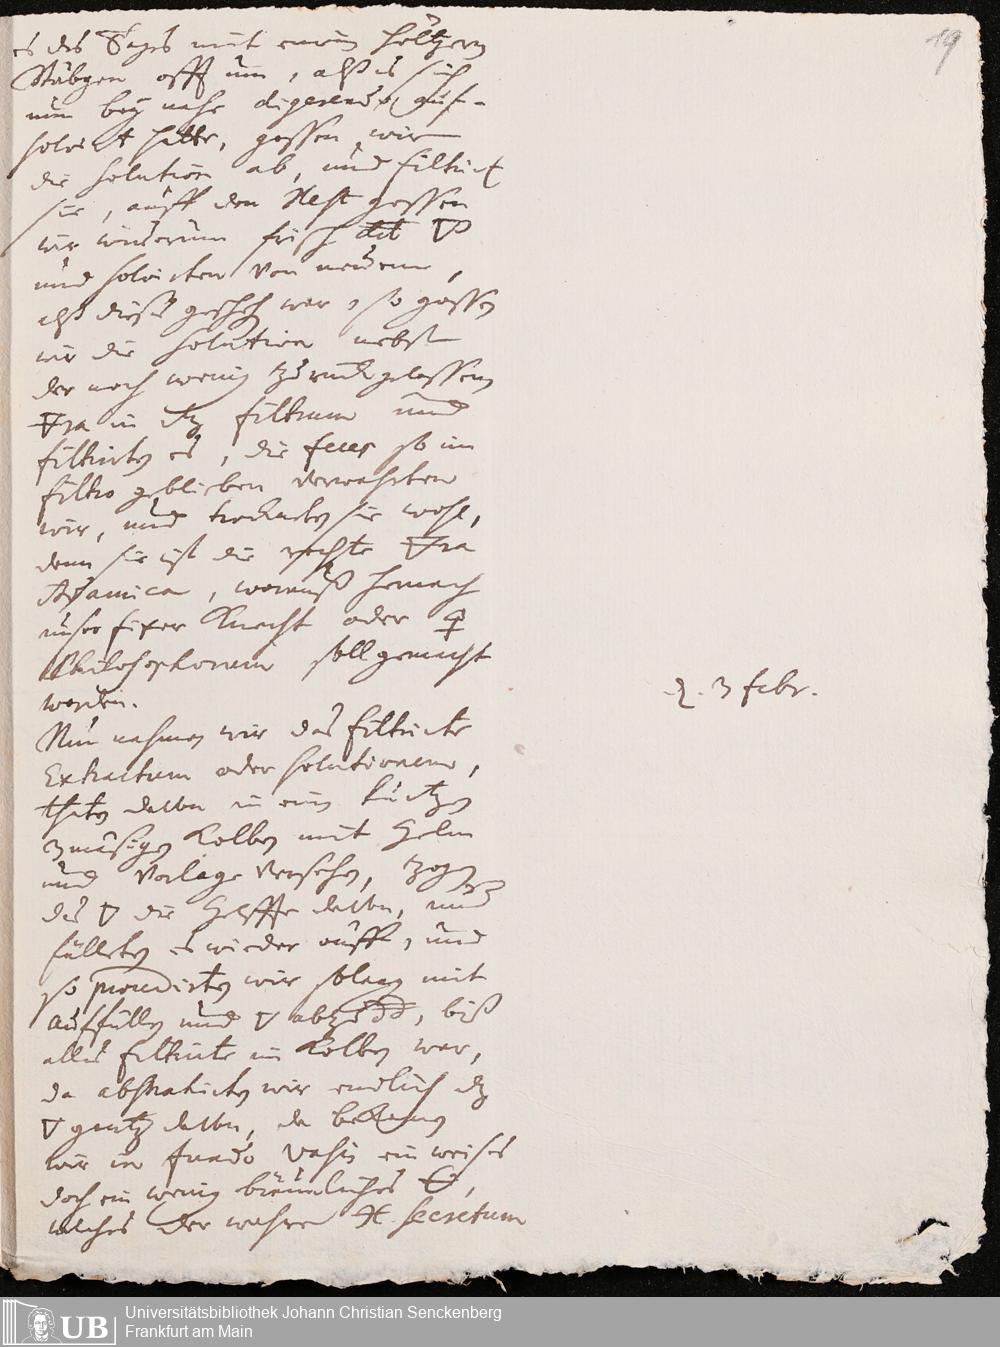 19
es des Tages mit einem höltzern
Stäbgen offt um, alß es sich
nun bey nahe digerendo auf-
solvirt hatte, gossen wir
die Solution ab, und filtrirt
sie, auff den Rest gossen
wir wiederum frisch 🜄
und solvirten von neuem,
alß dieses gescheh war, so gossen
wir die Solution nebst
der noch wenig zurückgelassenen
🜃ra in dz filtrum und
filtrirten es, die feces so im
filtro geblieben verwahrten
wir, und trockneten sie wohl,
denn sie ist die rechte 🜃ra
Adamica, woraus hernach
unser fixer Knecht oder 🜍
Philosophorum soll gemacht
werden.
d. 3 febr.
Nun nahmen wir das filtrirte
Extractum oder solutionem,
thaten davon in ein
mäsigen Kolben mit Helm
und Vorlage versehen, zogen
das 🜄 die Helffte davon, und
fülleten es wieder auff, und
so procedirten wir solang mit
auffüllen und 🜄 abziehen, biß
alles filtrirte im Kolben war,
da abstrahirten wir endlich dz
🜄 gantz davon, da bekamen
wir in fundo vasis ein weises
doch ein wenig bräunliches 🜔,
welches der wahre secretum
Universitätsbibliothek Johann Christian Senckenberg
UB Frankfurt am Main